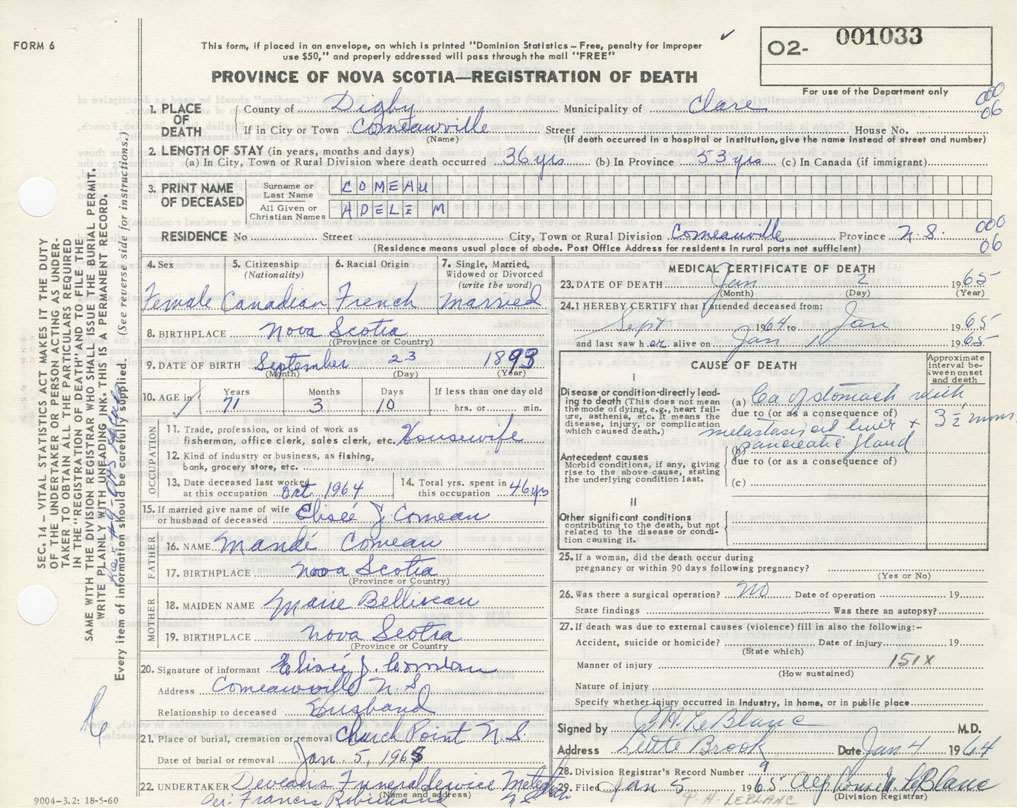 FORM 6
This form, if placed in an envelope, on which is printed "Dominion Statistics – Free, penalty for improper
use $50," and properly addressed will pass through the mail "FREE"
PROVINCE OF NOVA SCOTIA—REGISTRATION OF DEATH
O2- 001033
For use of the Department only
1. PLACE OF DEATH County of Digby Municipality of Clare 000 06
If in City or Town Comeauville Street House No.
(Name) (If death occurred in a hospital or institution, give the name instead of street and number)
2. LENGTH OF STAY (in years, months and days)
(a) In City, Town or Rural Division where death occurred 36 yrs (b) In Province 53 yrs (c) In Canada (if immigrant)
3. PRINT NAME OF DECEASED
Surname or Last Name COMEAU
All Given or Christian Names ADELE M
RESIDENCE No Street City, Town or Rural Division Comeauville Province N.S. 000 06
(Residence means usual place of abode. Post Office Address for residents in rural parts not sufficient)
4. Sex 5. Citizenship (Nationality) 6. Racial Origin 7. Single, Married, Widowed or Divorced (write the word)
Female Canadian French Married
8. BIRTHPLACE Nova Scotia
(Province or Country)
9. DATE OF BIRTH September 23 1893
(Month) (Day) (Year)
10. AGE in Years Months Days If less than one day old
71 3 10 hrs. or min.
OCCUPATION
11. Trade, profession, or kind of work as
fisherman, office clerk, sales clerk, etc. Housewife
12. Kind of industry or business, as fishing,
bank, grocery store, etc.
13. Date deceased last worked at this occupation Oct 1964 14. Total yrs. spent in this occupation 46 yrs
15. If married give name of wife or husband of deceased Elisée J. Comeau
FATHER
16. NAME Mandé Comeau
17. BIRTHPLACE Nova Scotia
(Province or Country)
MOTHER
18. MAIDEN NAME Marie Belliveau
19. BIRTHPLACE Nova Scotia
(Province or Country
20. Signature of informant Elisée J. Comeau
Address Comeauville N.S
Relationship to deceased Husband
21. Place of burial, cremation or removal Church Point N.S.
Date of burial or removal Jan. 5, 1965
22. UNDERTAKER Funeral Service
(Name and address)
MEDICAL CERTIFICATE OF DEATH
23. DATE OF DEATH Jan 2 1965
(Month) (Day) (Year)
24. I HEREBY CERTIFY that I attended deceased from:
Sept 1964 to Jan 1965
and last saw h er alive on Jan 1 1965
CAUSE OF DEATH
Approximate interval between onset and death
I
Disease or condition directly leading to death (This does not mean the mode of dying, e.g., heart failure, asthenia, etc. It means the disease, injury, or complication which caused death.)
(a) Ca of stomach with
due to (or as a consequence of) 3½ mons
metastasis of liver +
(b) pancreatic gland
due to (or as a consequence of)
Antecedent causes
Morbid conditions, if any, giving rise to the above cause, stating the underlying condition last.
(c)
II
Other significant conditions
contributing to the death, but not related to the disease or condition causing it.
25. If a woman, did the death occur during
pregnancy or within 90 days following pregnancy?
(Yes or No)
26. Was there a surgical operation? No Date of operation 19
State findings Was there an autopsy?
27. If death was due to external causes (violence) fill in also the following:–
Accident, suicide or homicide? Date of injury 19
(State which)
Manner of injury 151X
(How sustained)
Nature of injury
Specify whether injury occurred in Industry, in home, or in public place
Signed by LeBlanc M.D.
Address Little Brook Date Jan 4 1964
28. Division Registrar's Record Number 9
29. Filed Jan 5 1965 LeBlanc
(Division Registrar)
P. A. LEBLANC
SEC. 14 – VITAL STATISTICS ACT MAKES IT THE DUTY
OF THE UNDERTAKER OR PERSON ACTING AS UNDER-
TAKER TO OBTAIN ALL THE PARTICULARS REQUIRED
IN THE "REGISTRATION OF DEATH" AND TO FILE THE
SAME WITH THE DIVISION REGISTRAR WHO SHALL ISSUE THE BURIAL PERMIT.
WRITE PLAINLY WITH UNFADING INK. THIS IS A PERMANENT RECORD.
Every item of information should be carefully supplied. (See reverse side for instructions.)
9004–3.2: 18-5-60